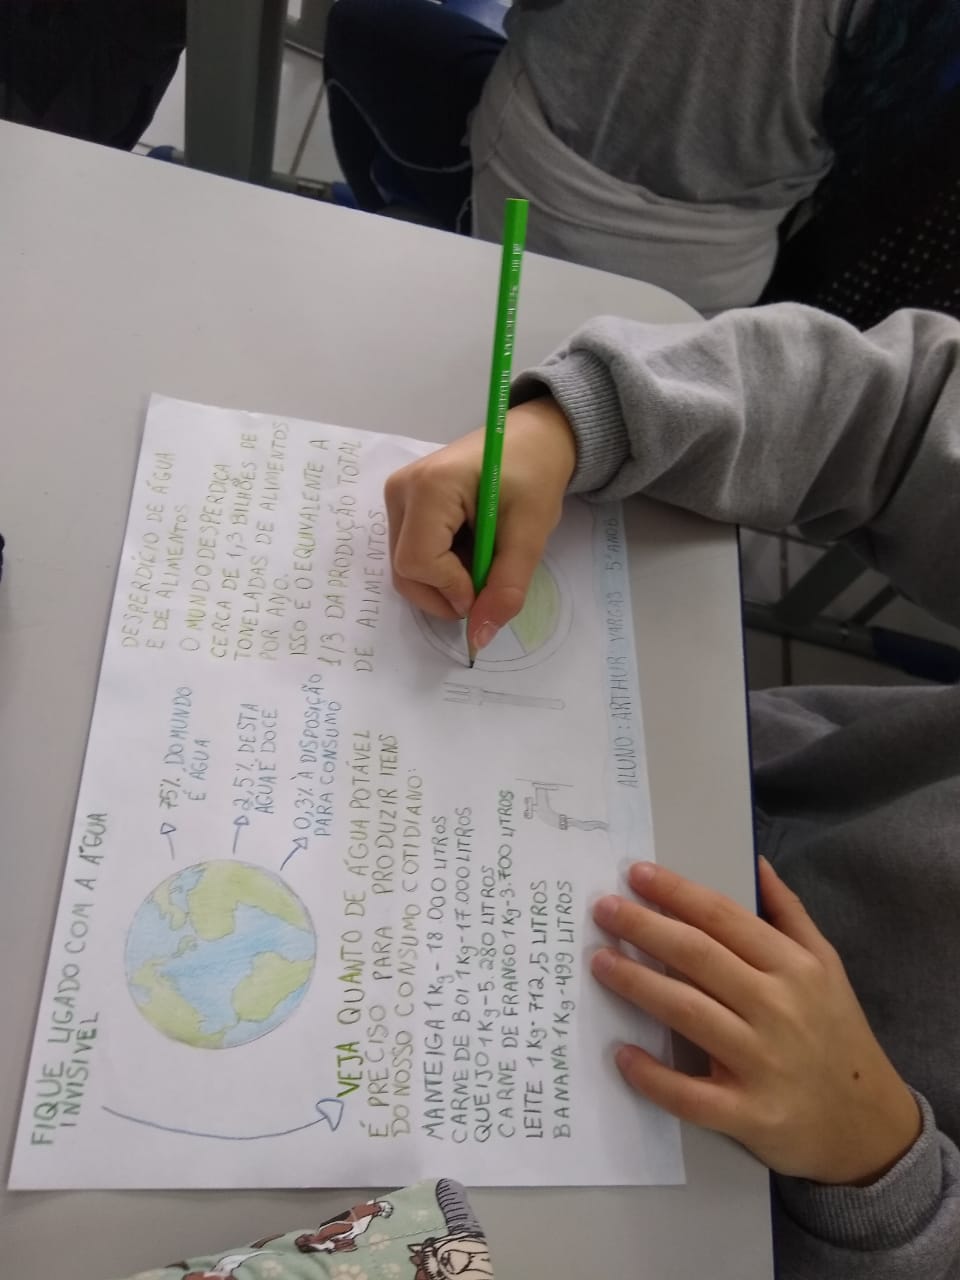 FIQUE LIGADO COM A ÁGUA
INVISÍVEL
75% DO MUNDO
É ÁGUA
2,5% DESTA
ÁGUA É DOCE
0,3% À DISPOSIÇÃO
PARA CONSUMO
DESPERDÍCIO DE ÁGUA
E DE ALIMENTOS
O MUNDO DESPERDIÇA
CERCA DE 1,3 BILHÕES DE
TONELADAS DE ALIMENTOS
POR ANO.
ISSO É O EQUIVALENTE A
1/3 DA PRODUÇÃO TOTAL
DE ALIMENTOS
VEJA QUANTO DE ÁGUA POTÁVEL
É PRECISO PARA PRODUZIR ITENS
DO NOSSO CONSUMO COTIDIANO:
MANTEIGA 1Kg - 18.000 LITROS
CARNE DE BOI 1Kg - 17.000 LITROS
QUEIJO 1Kg - 5.280 LITROS
CARNE DE FRANGO 1Kg - 3.700 LITROS
LEITE 1Kg - 712,5 LITROS
BANANA 1Kg - 499 LITROS
ALUNO: ARTHUR VARGAS 5º ANO B